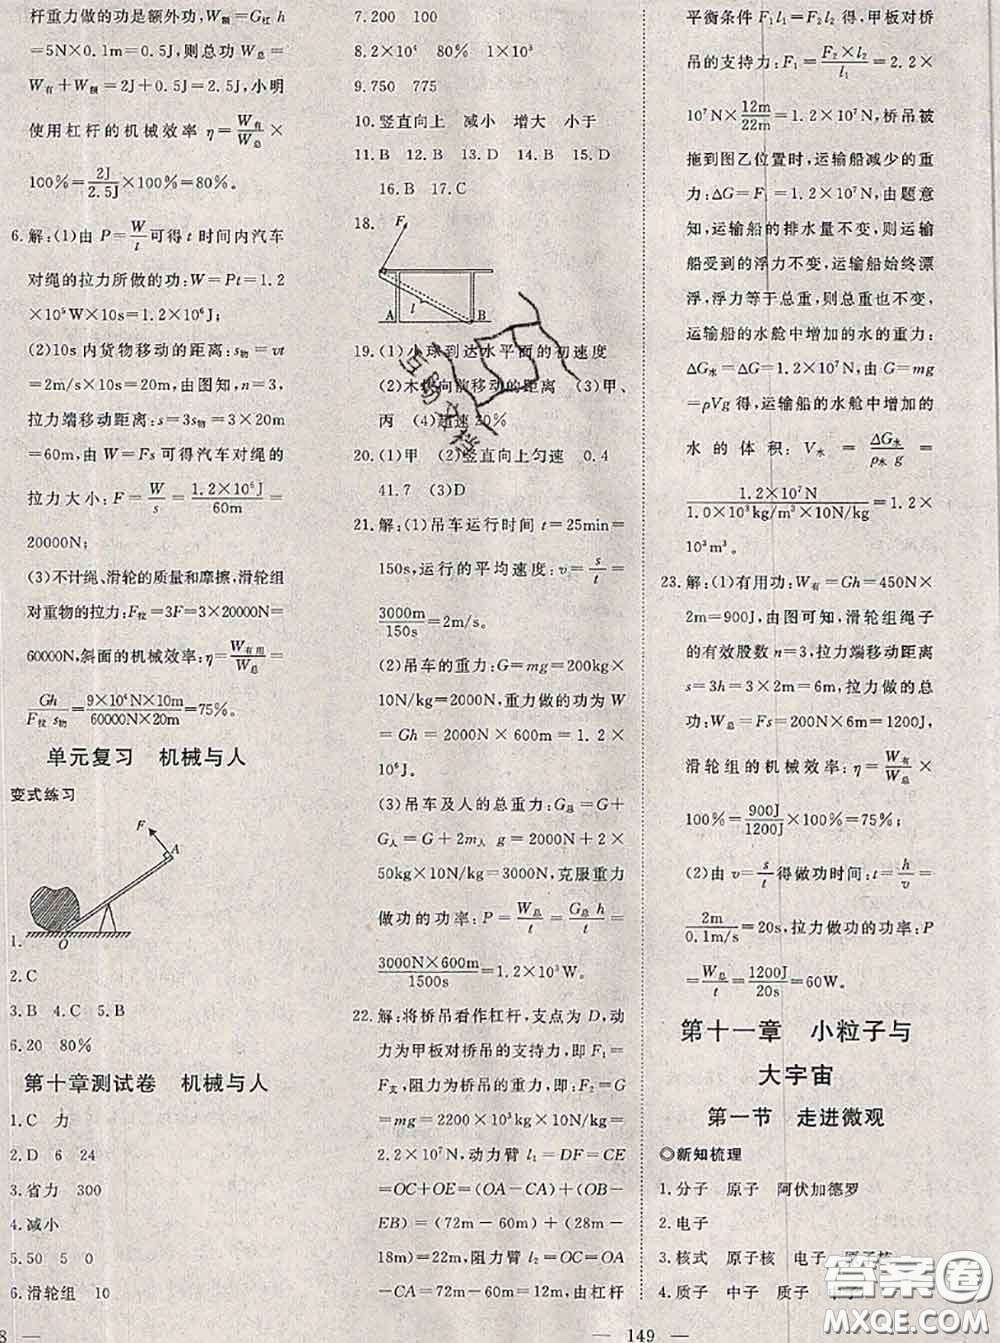 杆重力做的功是额外功,W额=G杠 h
=5N×0.1m=0.5J,则总功 W总=
W有+W额=2J+0.5J=2.5J,小明
使用杠杆的机械效率 η=W有/W总×
100%=2J/2.5J×100%=80%。
6.解:(1)由 P=W/t可得 t 时间内汽车
对绳的拉力所做的功:W=Pt=1.2
×10⁵W×10s=1.2×10⁶J;
(2)10s 内货物移动的距离:s物=vt
=2m/s×10s=20m,由图知,n=3,
拉力端移动距离:s=3s物=3×20m
=60m,由 W=Fs 可得汽车对绳的
拉力大小:F=W/s=1.2×10⁶J/60m=
20000N;
(3)不计绳、滑轮的质量和摩擦,滑轮组
对重物的拉力:F拉=3F=3×20000N=
60000N,斜面的机械效率:η=W有用/W总
=Gh/F拉 s物=9×10⁴N×10m/60000N×20m=75%。
单元复习 机械与人
变式练习
F
A
O
1.
2.C
3.B 4.C 5.B
6.20 80%
第十章测试卷 机械与人
1.C 力
2.D 6 24
3.省力 300
4.减小
5.50 5 0
6.滑轮组 10
7.200 100
8.2×10⁴ 80% 1×10³
9.750 775
10.竖直向上 减小 增大 小于
11.B 12.B 13.D 14.B 15.D
16.B 17.C
18.
F
l
A B
19.(1)小球到达水平面的初速度
(2)木块向前移动的距离 (3)甲、
丙 (4)超速20%
20.(1)甲 (2)竖直向上匀速 0.4
41.7 (3)D
21.解:(1)吊车运行时间 t=25min=
150s,运行的平均速度:v=s/t=
3000m/150s=20m/s;
(2)吊车的重力:G=mg=200kg×
10N/kg=2000N,重力做的功为 W
=Gh=2000N×600m=1.2×
10⁶J。
(3)吊车及人的总重力:G总=G+
G人=G+2m人 g=2000N+2×
50kg×10N/kg=3000N,克服重力
做功的功率:P=W总/t=G总 h/t=
3000N×600m/1500s=1.2×10³W。
22.解:将桥吊看作杠杆,支点为 D,动
力为甲板对桥吊的支持力,即 F₁=
F支,阻力为桥吊的重力,即:F₂=G
=mg=2200×10³kg×10N/kg=
2.2×10⁷N,动力臂 l₁=DF=CE
=OC+OE=(OA-CA)+(OB-
EB)=(72m-60m)+(28m-
18m)=22m,阻力臂 l₂=OC=OA
-CA=72m-60m=12m,由杠杆
平衡条件 F₁l₁=F₂l₂ 得,甲板对桥
吊的支持力:F₁=F₂×l₂/l₁=2.2×
10⁷N×12m/22m=1.2×10⁷N,桥吊被
拖到图乙位置时,运输船减少的重
力:ΔG=F₁=1.2×10⁷N,由题意
知,运输船的排水量不变,则运输
船受到的浮力不变,运输船始终漂
浮,浮力等于总重,则总重也不变,
运输船的水舱中增加的水的重力:
ΔG水=ΔG=1.2×10⁷N,由G=mg
=ρVg 得,运输船的水舱中增加的
水的体积:V水=ΔG水/ρ水 g=
1.2×10⁷N/1.0×10³kg/m³×10N/kg=1.2×
10³m³。
23.解:(1)有用功:W有=Gh=450N×
2m=900J,由图可知,滑轮组绳子
的有效股数 n=3,拉力端移动距离
s=3h=3×2m=6m,拉力做的总
功:W总=Fs=200N×6m=1200J,
滑轮组的机械效率:η=W有/W总×
100%=900J/1200J×100%=75%;
(2)由 v=s/t得做功时间:t=h/v=
2m/0.1m/s=20s,拉力做功的功率:P
=W总/t=1200J/20s=60W。
第十一章 小粒子与
大宇宙
第一节 走进微观
◎新知梳理
1.分子 原子 阿伏加德罗
2.电子
3.核式 原子核 电子 原子核
4.质子 中子 质子
互助文档
答案圈
MXQE.COM
8 —
— 149 —